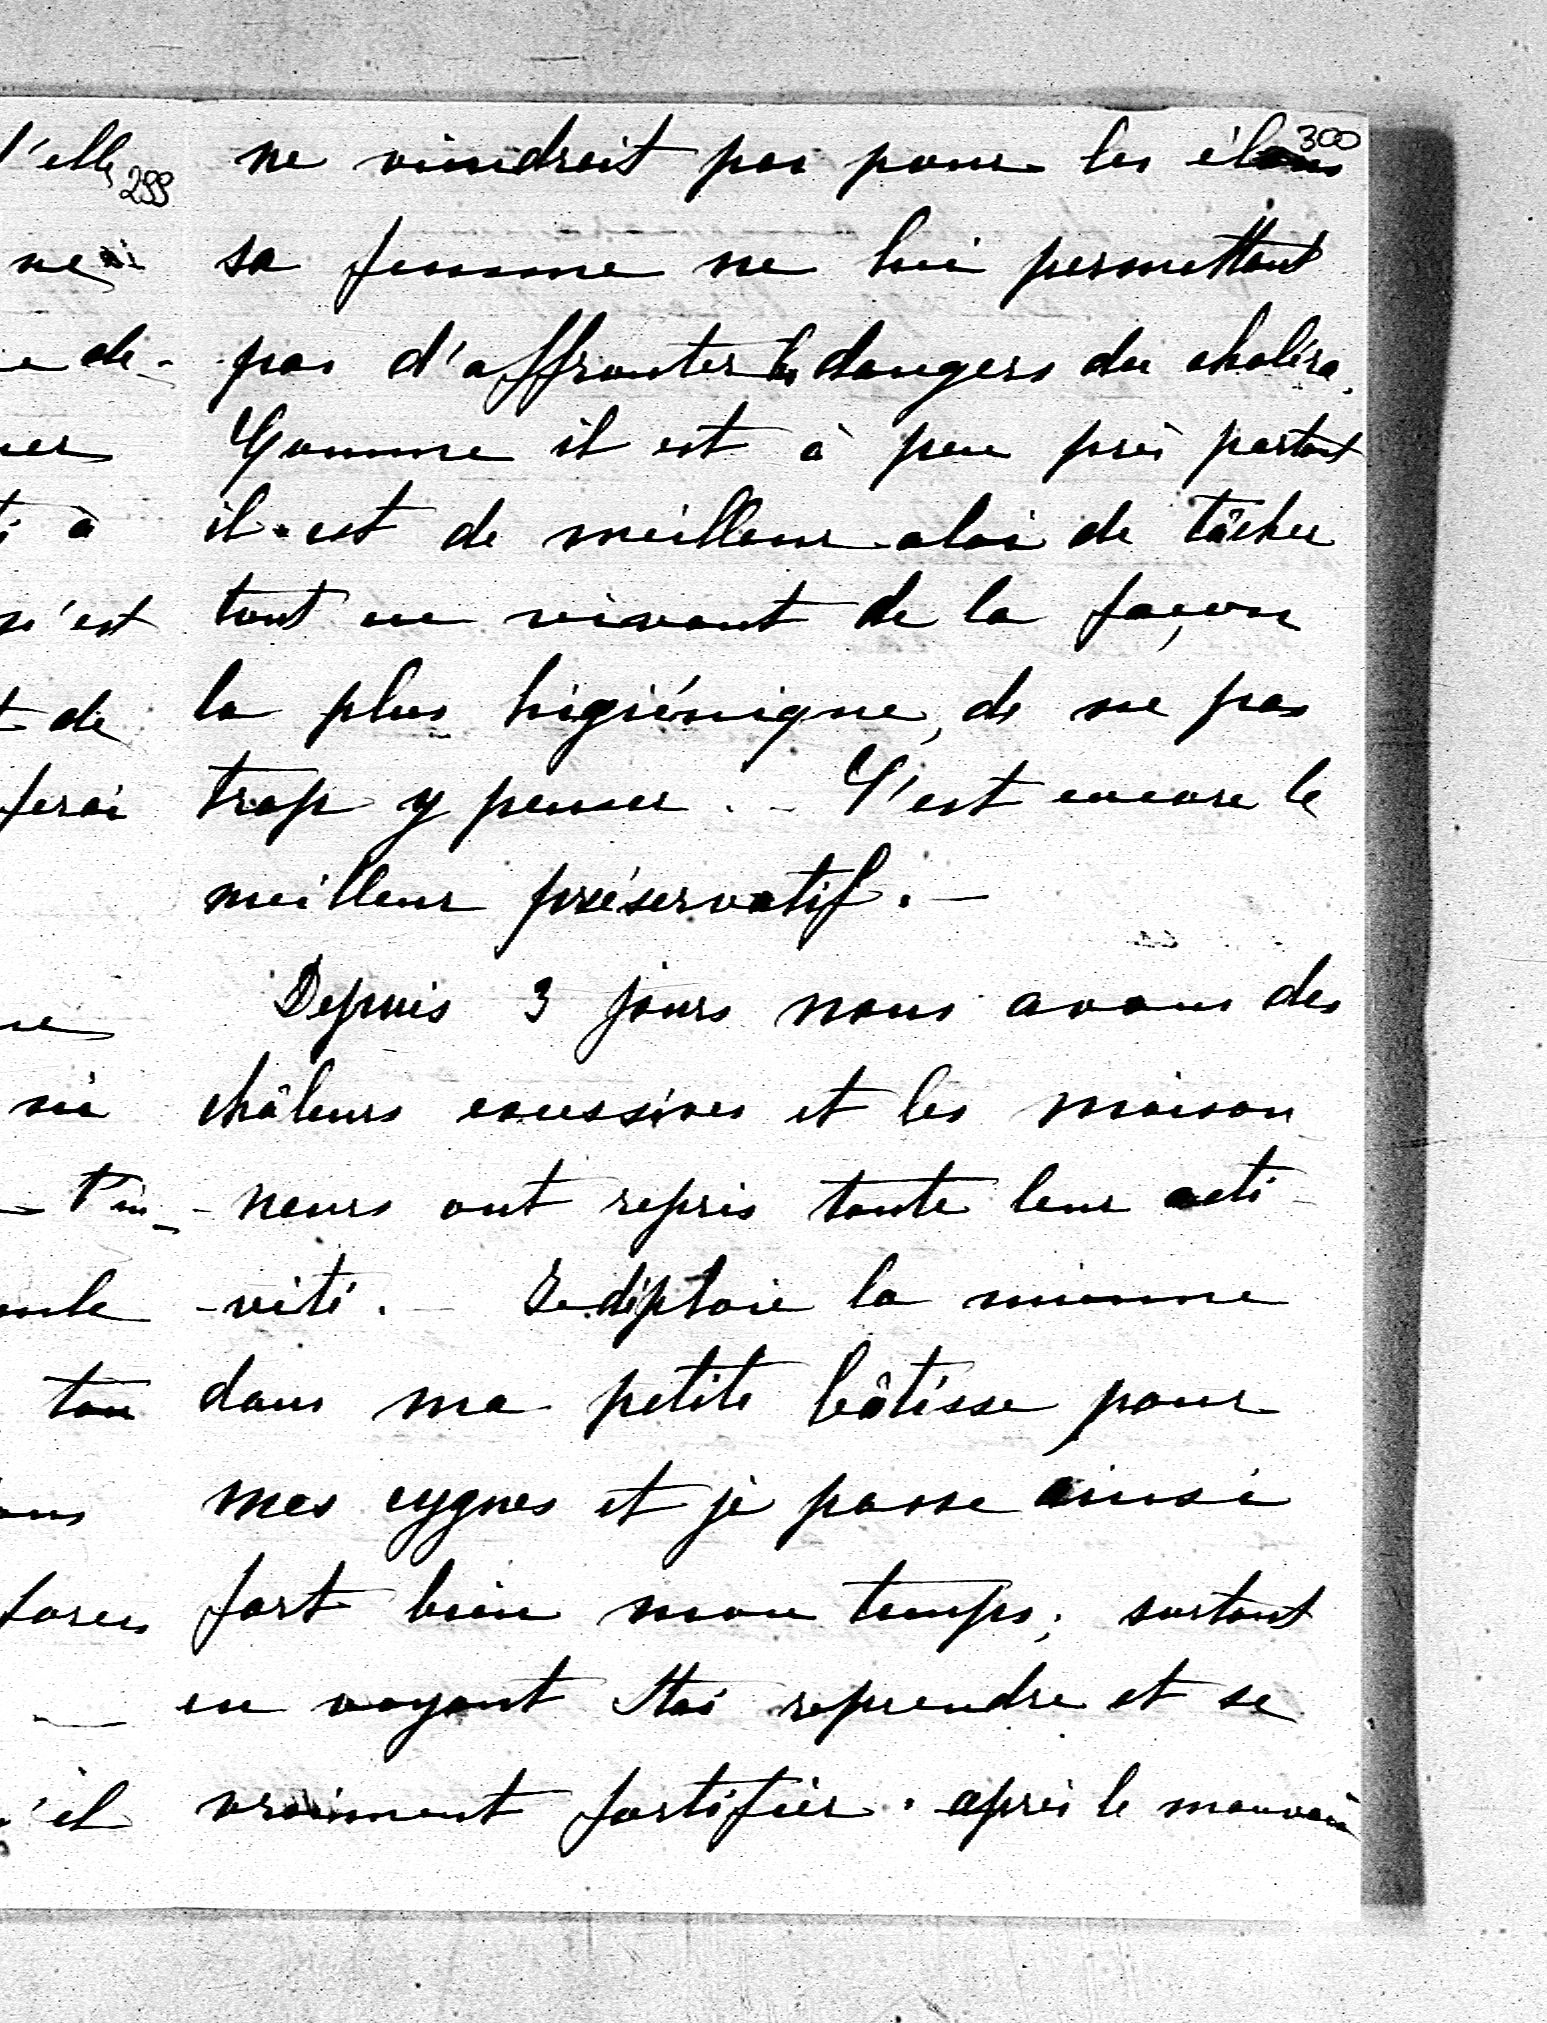 300
ne viendrait pas pour les élans
sa femme ne lui permettant
pas d'affronter les dangers du choléra.
Comme il est à peu près partout
il est de meilleur aloi de tâcher
tout en vivant de la façon
la plus higiénique, de ne pas
trop y penser. – C'est encore le
meilleur préservatif. –
Depuis 3 jours nous avons des
châleurs excessives et les moison
- neurs ont repris toute leur acti -
- vité. – Je déploie la mienne
dans ma petite bâtisse pour
mes cygnes et je passe ainsi
fort bien mon temps; surtout
en voyant reprendre et se
vraiment fortifier. après le mauvais
l'elle
299
de -
à
n'est
de
ferai
ton